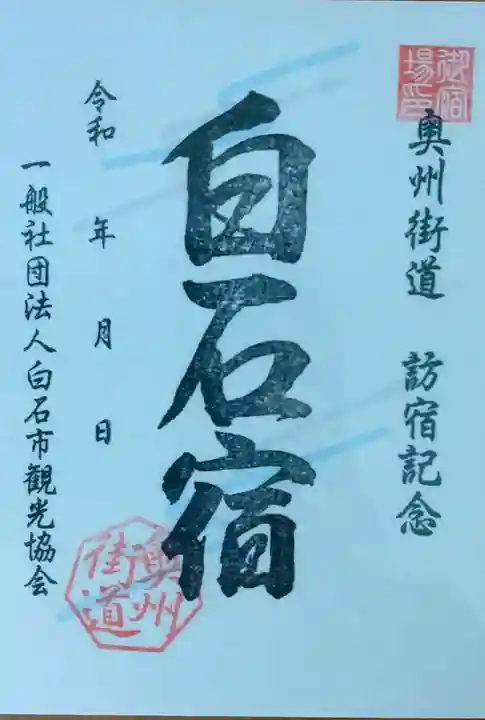 御宿場印
奥州街道 訪宿記念
白石宿
令和 年 月 日
一般社団法人白石市観光協会
奥州街道